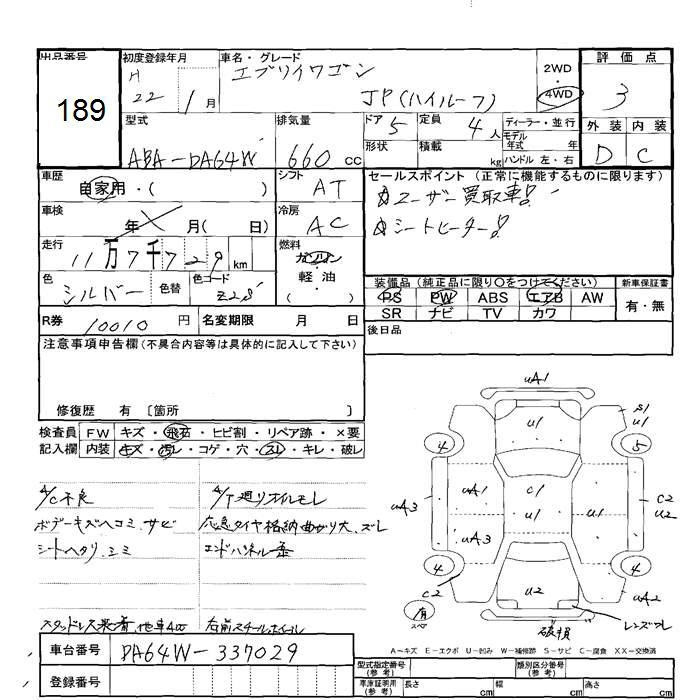 出品番号
189
初度登録年月
H 22 1 月
車名・グレード
エブリイワゴン
JP(ハイルーフ)
2WD
4WD
評価点
3
外装 内装
D C
型式
ABA-DA64W
排気量
660 cc
ドア 5
定員 4 人
形状
積載 kg
ディーラー・並行
モデル年式 年
ハンドル 左・右
車歴
自家用・( )
シフト
AT
車検
年 月( 日)
冷房
AC
走行
11万7千729 km
燃料
ガソリン
・軽・油
( )
色
シルバー
色替
色コード
Z2S
R券 10010 円
名変期限 月 日
セールスポイント (正常に機能するものに限ります)
☆ユーザー買取車!
☆シートヒーター!
装備品 (純正品に限り○をつけてください)
PS PW ABS エアB AW
SR ナビ TV カワ
新車保証書
有・無
後日品
注意事項申告欄 (不具合内容等は具体的に記入して下さい)
修復歴 有 〔箇所 〕
検査員記入欄
FW キズ・飛石・ヒビ割・リペア跡・×要
内装 キズ・汚レ・コゲ・穴・スレ・キレ・破レ
A/C不良
ボデーキズヘコミ、サビ
シートヘタリ、シミ
A/T廻りオイルモレ
応急タイヤ格納曲がり大、ズレ
エンドパネル一番
スタッドレス装着、他車4WD
右前スチールホイール
uA1
u1
S1
u1
4
5
uA1
C1
uA3
C2
u2
uA3
u1
u1
4
4
C2
u2
uA2
有
スペア
破損
レンズワレ
A-キズ E-エクボ U-凹み W-補修跡 S-サビ C-腐食 XX-交換済
車台番号 DA64W-337029
登録番号
型式指定番号 (参考)
類別区分番号 (参考)
車庫証明用 (参考)
長さ cm
幅 cm
高さ cm